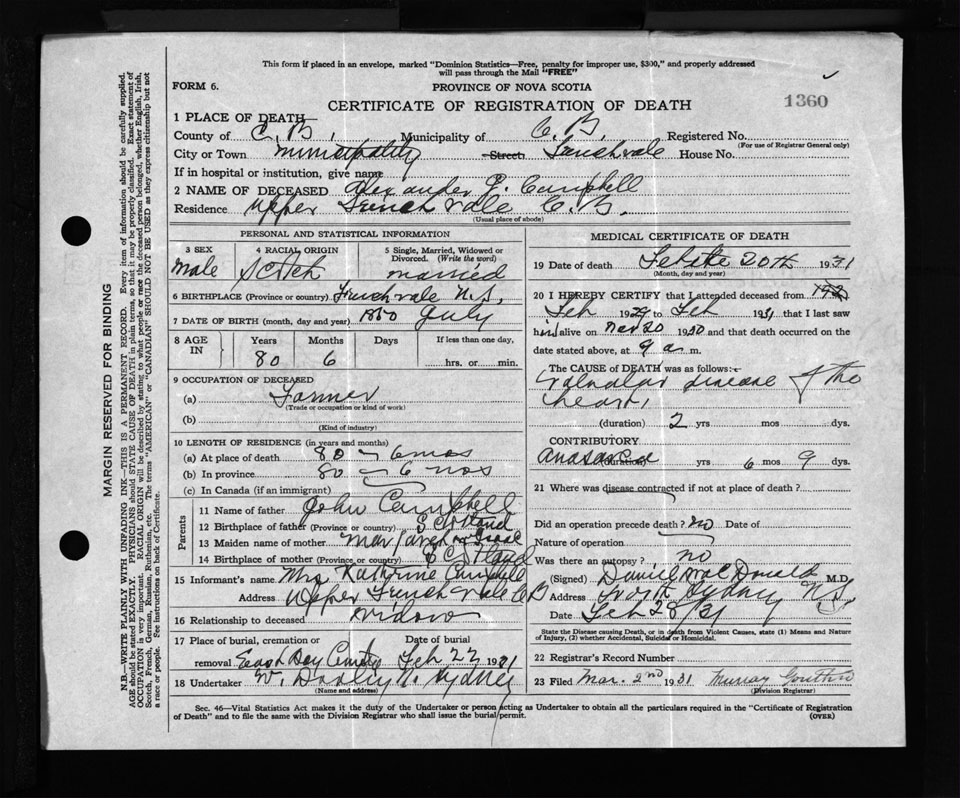 This form if placed in an envelope, marked "Dominion Statistics—Free, penalty for improper use, $300," and properly addressed
will pass through the Mail "FREE"
FORM 6.
PROVINCE OF NOVA SCOTIA
1360
CERTIFICATE OF REGISTRATION OF DEATH
1 PLACE OF DEATH
County of C. B. Municipality of C. B. Registered No.
(For use of Registrar General only)
City or Town Municipality Street Frenchvale House No.
If in hospital or institution, give name
2 NAME OF DECEASED Alexander J. Campbell
Residence Upper French Vale C. B.
(Usual place of abode)
PERSONAL AND STATISTICAL INFORMATION
3 SEX 4 RACIAL ORIGIN 5 Single, Married, Widowed or
Divorced. (Write the word)
Male Scotch married
6 BIRTHPLACE (Province or country) Frenchvale N.S.
7 DATE OF BIRTH (month, day and year) 1850 July
8 AGE IN Years Months Days If less than one day,
80 6 hrs. or min.
9 OCCUPATION OF DECEASED
(a) Farmer
(Trade or occupation or kind of work)
(b)
(Kind of industry)
10 LENGTH OF RESIDENCE (in years and months)
(a) At place of death 80 - 6 mos
(b) In province 80 - 6 mos
(c) In Canada (if an immigrant)
Parents
11 Name of father John Campbell
12 Birthplace of father (Province or country) Scotland
13 Maiden name of mother Margaret
14 Birthplace of mother (Province or country) Scotland
15 Informant's name Mrs Kathrine Campbell
Address Upper French Vale CB
16 Relationship to deceased Widow
17 Place of burial, cremation or Date of burial
removal East Bay Feb 22 1931
18 Undertaker W. Dooley N. Sydney
(Name and address)
MEDICAL CERTIFICATE OF DEATH
19 Date of death 20th 1931
(Month, day and year)
20 I HEREBY CERTIFY that I attended deceased from
Feb 1929 to Feb 1931 that I last saw
him alive on Nov 20 1930 and that death occurred on
date stated above, at 9 a m.
The CAUSE of DEATH was as follows:
Valvular disease of the
heart
(duration) 2 yrs mos dys.
CONTRIBUTORY
Anasarca (duration) yrs 6 mos 9 dys.
21 Where was disease contracted if not at place of death?
Did an operation precede death? no Date of
Nature of operation
Was there an autopsy? no
(Signed) Daniel MacDonald M.D.
Address North Sydney N.S.
Date Feb 28/31
State the Disease causing Death, or in death from Violent Causes, state (1) Means and Nature
of Injury, (2) whether Accidental, Suicidal or Homicidal.
22 Registrar's Record Number
23 Filed Mar. 2nd 1931 Murray Gouthro
(Division Registrar)
Sec. 46—Vital Statistics Act makes it the duty of the Undertaker or person acting as Undertaker to obtain all the particulars required in the "Certificate of Registration
of Death" and to file the same with the Division Registrar who shall issue the burial permit. (OVER)
MARGIN RESERVED FOR BINDING
N.B.—WRITE PLAINLY WITH UNFADING INK—THIS IS A PERMANENT RECORD. Every item of information should be carefully supplied.
AGE should be stated EXACTLY. PHYSICIANS should STATE CAUSE OF DEATH in plain terms, so that it may be properly classified. Exact statement of
OCCUPATION is very important. RACIAL ORIGIN will be described by stating to what people or race the deceased person belonged, whether English, Irish,
Scotch, French, German, Russian, Ruthenian, etc. The terms "AMERICAN" or "CANADIAN" SHOULD NOT BE USED as they express citizenship but not
a race or people. See instructions on back of Certificate.